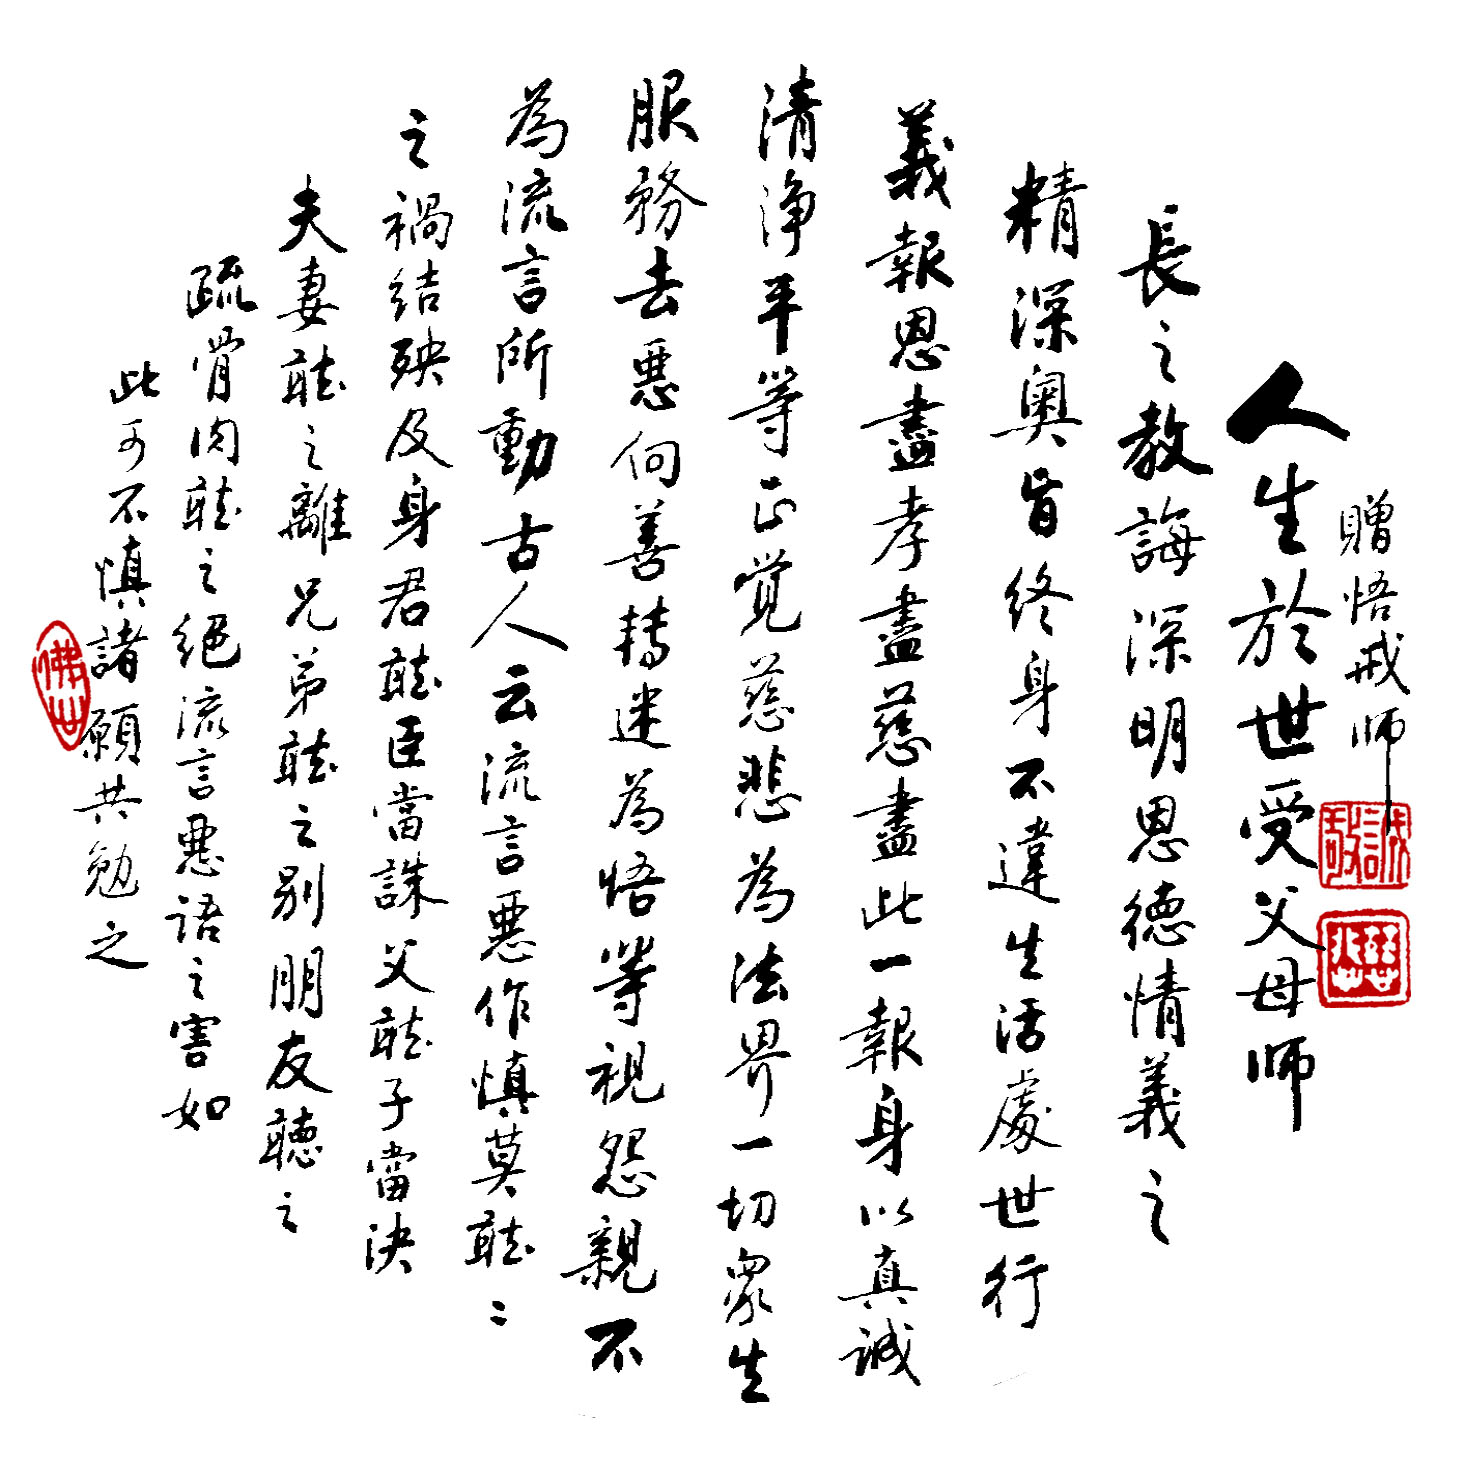 贈悟戒师
人生於世受父母师
長之教誨深明恩德情義之
精深奥旨终身不違生活處世行
義報恩盡孝盡慈盡此一報身以真誠
清淨平等正觉慈悲為法界一切眾生
服務去惡向善轉迷為悟等視怨親不
為流言所動古人云流言惡作慎莫聽〻
之禍结殃及身君聽臣當誅父聽子當决
夫妻聽之離兄弟聽之别朋友聽之
疏骨肉聽之絕流言惡语之害如
此可不慎諸願共勉之
誠敬
慈悲
佛世